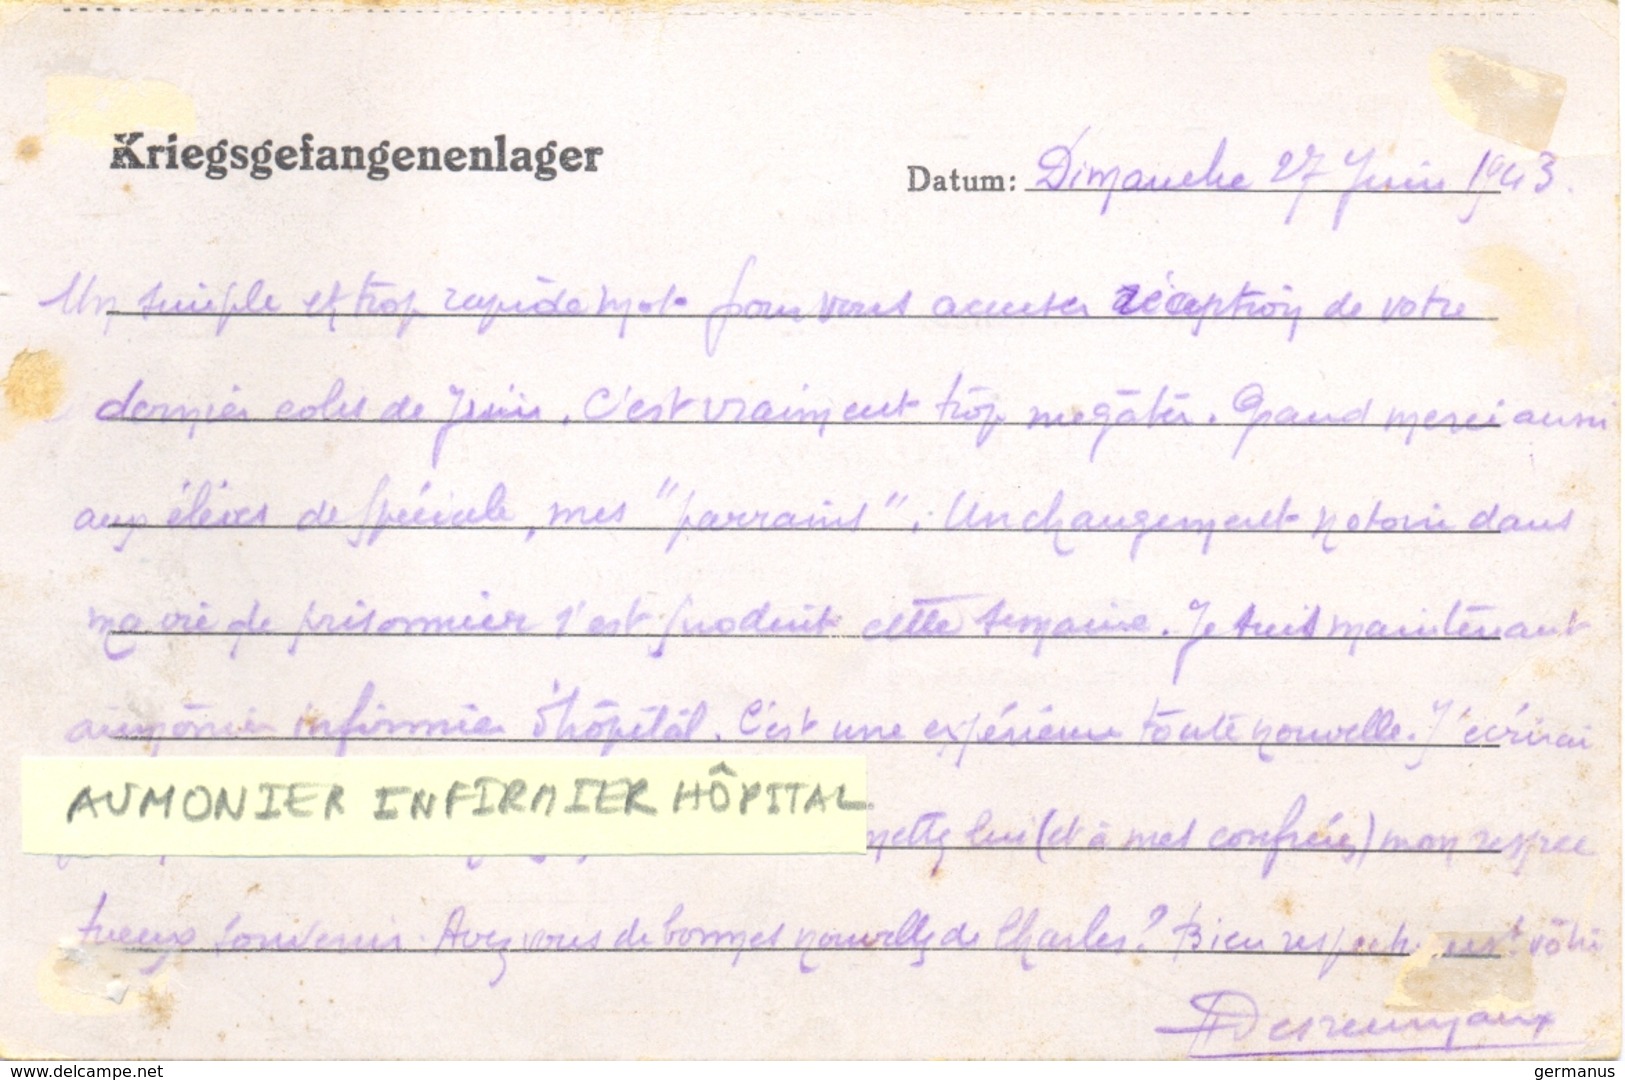 Kriegsgefangenenlager
Datum: Dimanche 27 Juin 1943.
Un simple et trop rapide mot pour vous accuser réception de votre
dernier colis de Juin. C'est vraiment trop me gâter. Grand merci aussi
aux élèves de spéciale, mes "parrains". Un changement notoire dans
ma vie de prisonnier s'est produit cette semaine. Je suis maintenant
aumônier infirmier d'hôpital. C'est une expérience toute nouvelle. J'écrirai
AUMONIER INFIRMIER HÔPITAL
lui (et à mes confrères) mon respec
tueux souvenir. Avez vous de bonnes nouvelles de Charles? Bien respect. vôtre
Desreumaux
www.delcampe.net
germanus